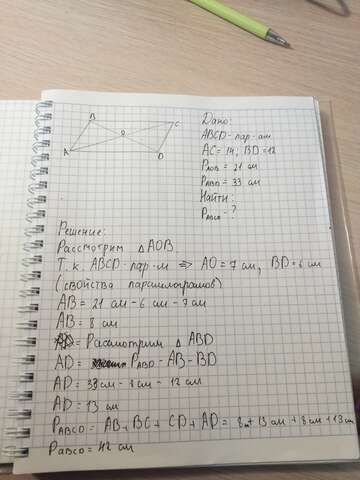 B
C
O
A
D
Дано:
ABCD - пар-ам
AC = 14; BD = 12
PAOB = 21 см
PABD = 33 см
Найти:
PABCD - ?
Решение:
Рассмотрим △ AOB
Т.к. ABCD - пар-м ⇒ AO = 7 см, BD = 6 см
(свойства параллелограмов)
AB = 21 см - 6 см - 7 см
AB = 8 см
Расмотрим △ ABD
AD = PABD - AB - BD
AD = 33 см - 8 см - 12 см
AD = 13 см
PABCD = AB + BC + CD + AD = 8 см + 13 см + 8 см + 13 см
PABCD = 42 см